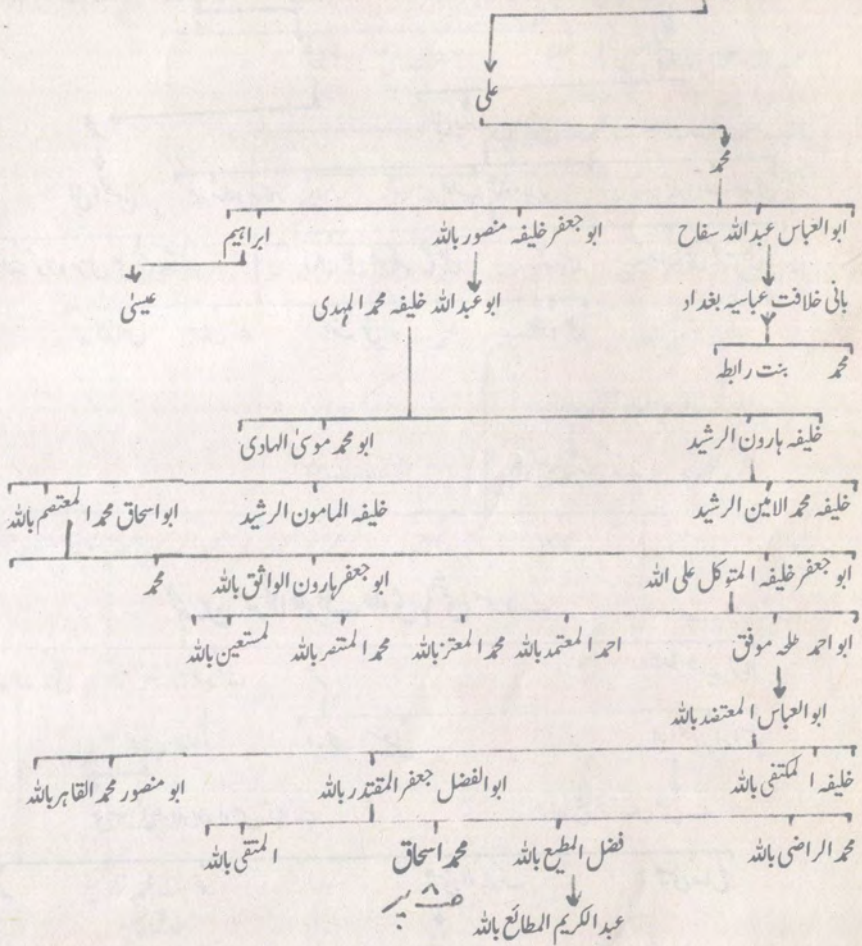 علی
محمد
ابوالعباس عبد اللہ سفاح ابو جعفر خلیفہ منصور باللہ ابراہیم
بانی خلافت عباسیہ بغداد ابو عبد اللہ خلیفہ محمد المہدی عیسیٰ
محمد بنت رابطہ
خلیفہ ہارون الرشید ابو محمد موسیٰ الہادی
خلیفہ محمد الامین الرشید خلیفہ المامون الرشید ابو اسحاق محمد المعتصم باللہ
ابو جعفر خلیفہ المتوکل علی اللہ ابو جعفر ہارون الواثق باللہ محمد
ابو احمد طلحہ موفق احمد المعتمد باللہ محمد المعتز باللہ محمد المنتصر باللہ لمستعین باللہ
ابو العباس المعتضد باللہ
خلیفہ المکتفی باللہ ابو الفضل جعفر المقتدر باللہ ابو منصور محمد القاہر باللہ
محمد الراضی باللہ فضل المطیع باللہ محمد اسحاق المتقی باللہ
صـ۸ پر
عبد الکریم المطائع باللہ